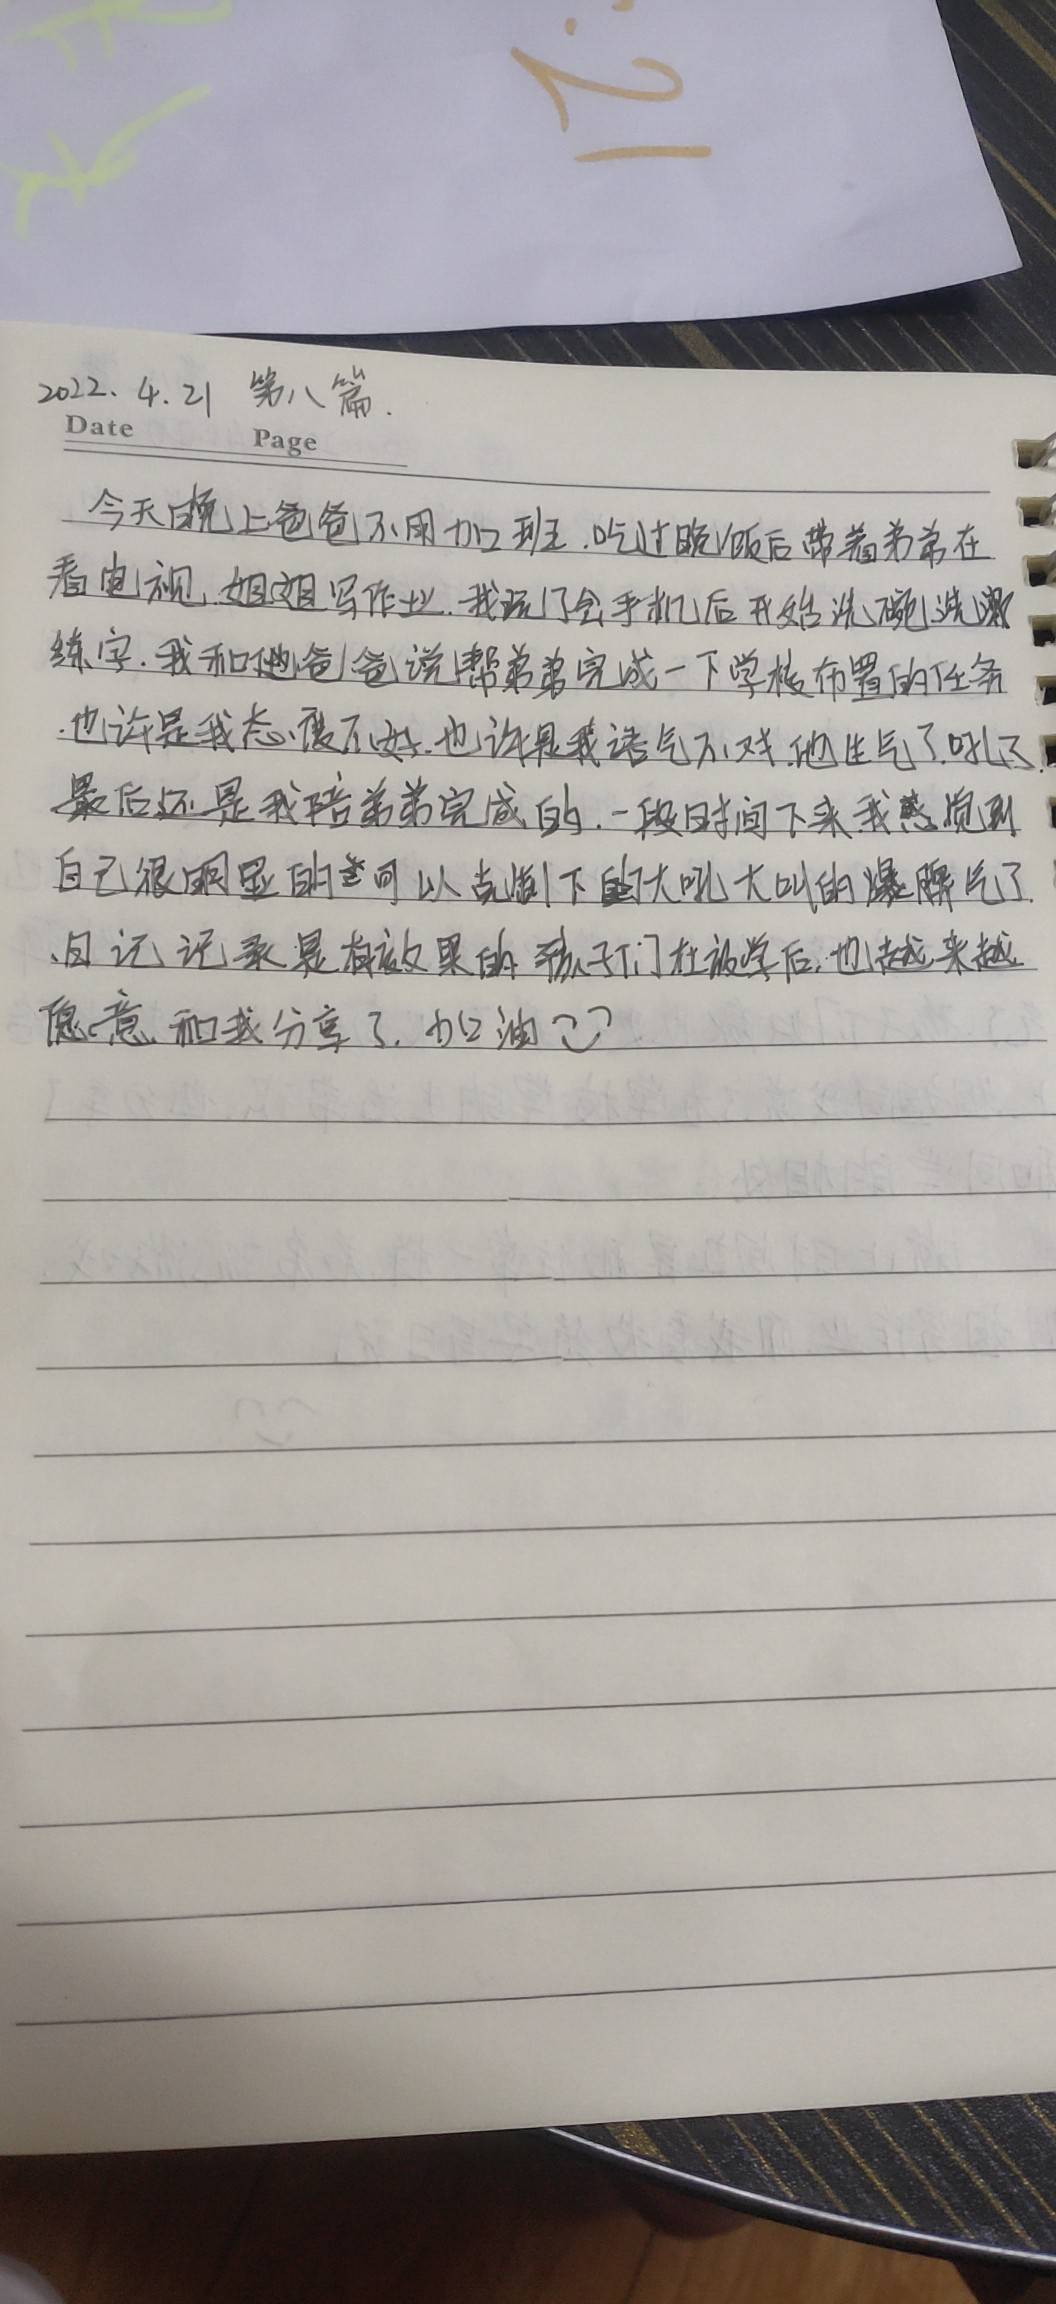 .21
2022.4.21 第八篇.
Date Page
今天晚上爸爸不用加班.吃过晚饭后带着弟弟在
看电视.姐姐写作业.我玩了会手机后开始洗碗洗漱
练字.我和他爸爸说帮弟弟完成一下学校布置的任务
.也许是我态度不好.也许是我语气不对.他生气了.吼了.
最后还是我陪弟弟完成的.一段时间下来我感觉到
自己很明显的可以克制下的大吼大叫的爆脾气了.
.日记记录是有效果的.孩子们在放学后.也越来越
愿意和我分享了.加油